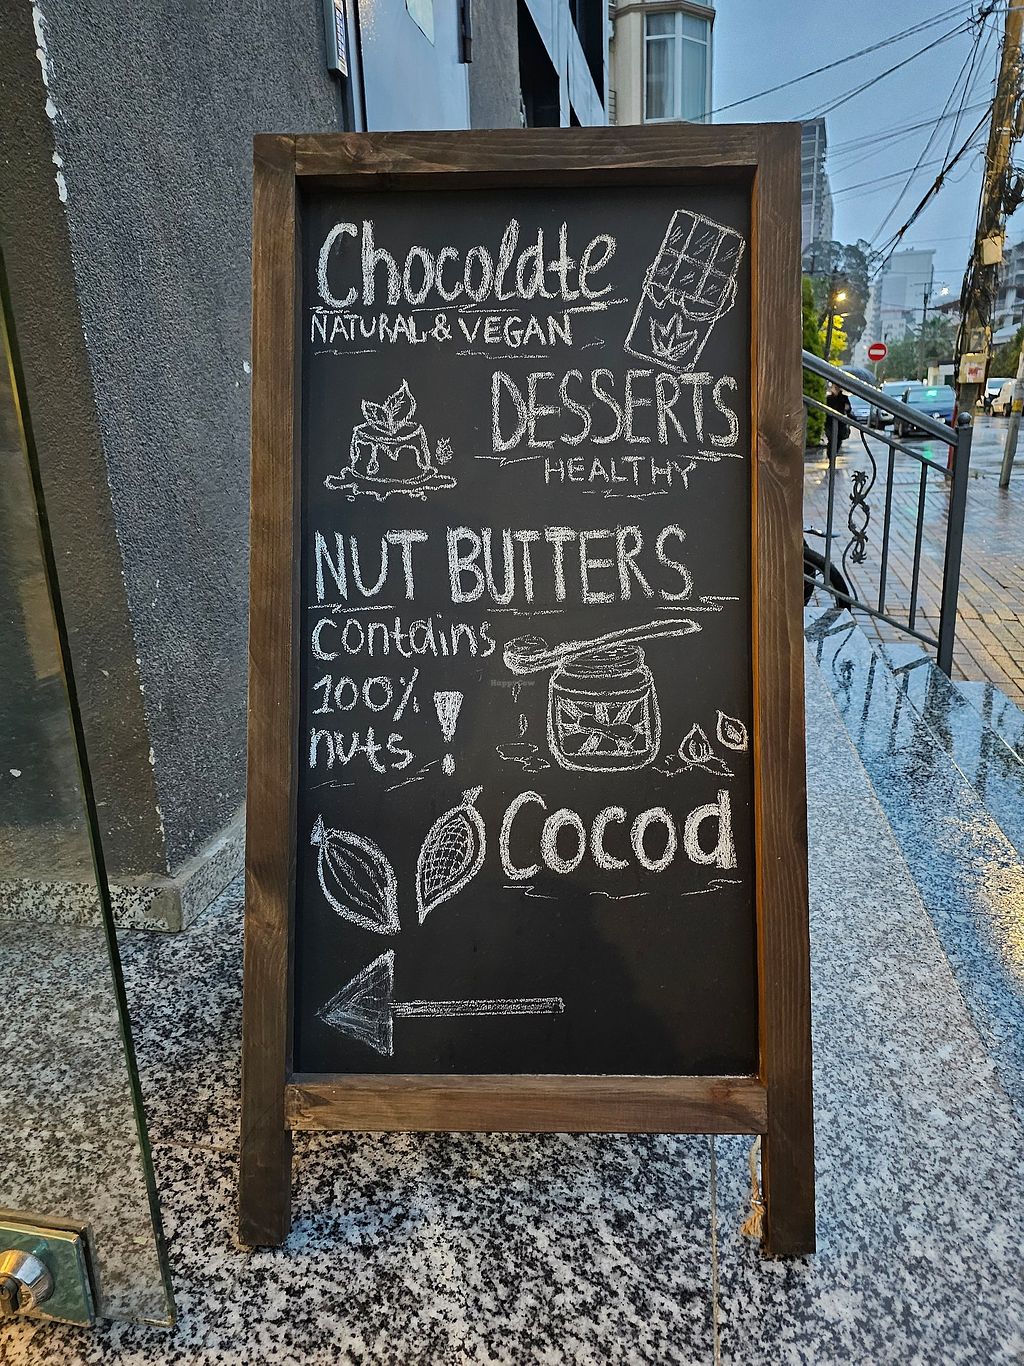 Chocolate
NATURAL & VEGAN
DESSERTS
HEALTHY
NUT BUTTERS
contains
100%
nuts !
Cocoa
HappyCow